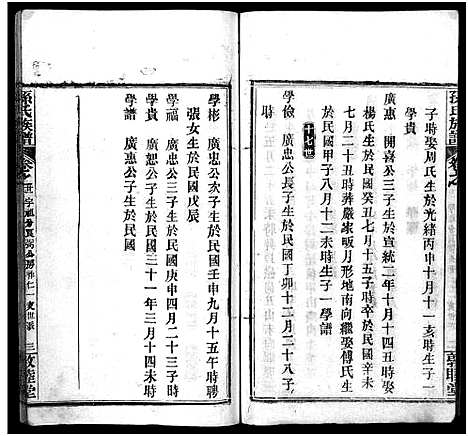 孫氏族譜
子時娶周氏生於光緒丙申十月十一亥時生子一
學貴
廣惠 開喜公三子生於宣統二年十月十四丑時娶
楊氏生於民國癸丑七月十五子時卒於民國
七月二十丑時葬嚴家畈月形地南向繼娶傅氏生
於民國甲子八月十二未時生子一學譜
十七世
學儉 廣忠公長子生於民國丁卯十二月二十八子
學彬 廣忠公次子生於民國壬申九月十五午時聘
張女生於民國戊辰
學福 廣忠公三子生於民國庚申四月二十三子時
學貴 廣恕公子生於民國三十一年三月十四未時
學譜 廣惠公子生於民國
孫氏族譜
三 敦睦堂